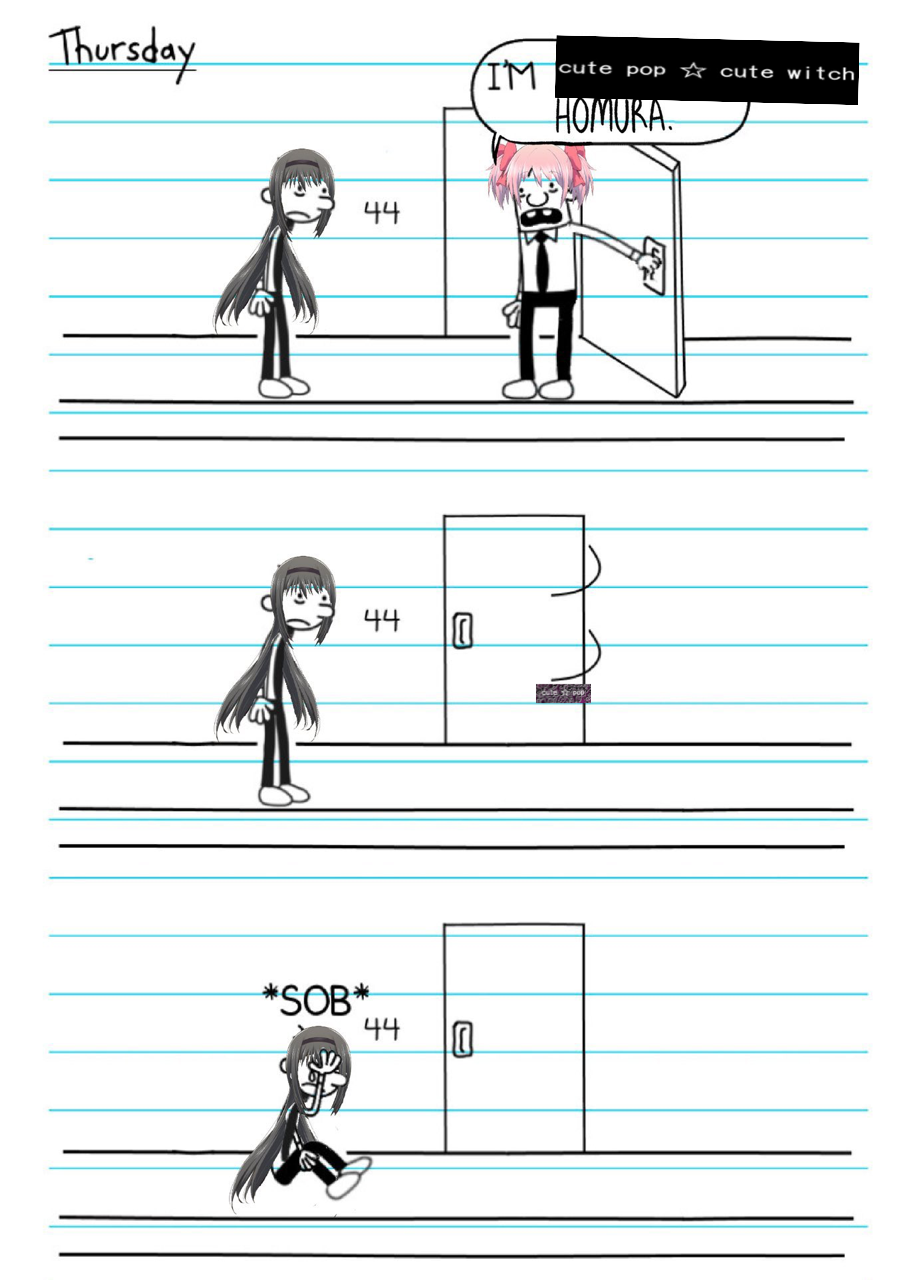 Thursday
I'M cute pop ☆ cute witch
HOMURA.
44
44
cute ☆ pop
*SOB*
44